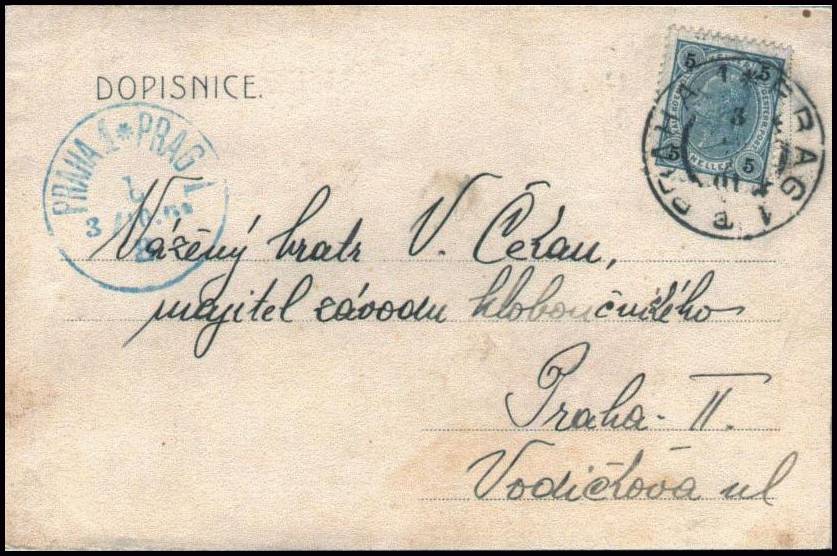 DOPISNICE.
PRAHA 1 * PRAG 1
3
5 5
HELLER
5 5
PRAHA 1 * PRAG 1
3
Vážený bratr V. Čekan,
majitel závodu kloboučnického
Praha - II.
Vodičkova ul